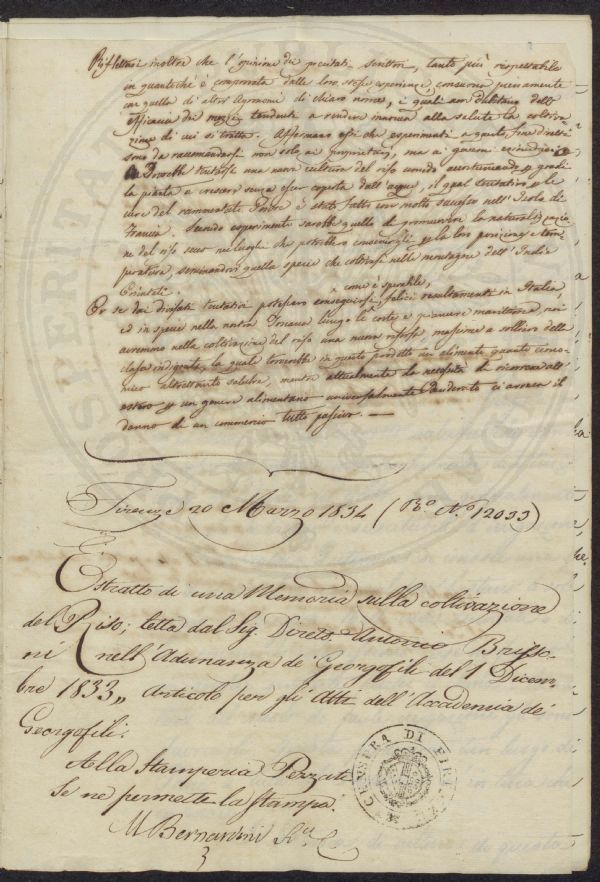 Riflettasi inoltre che l'opinione dei precitati scrittori, tanto più rispettabile
in quantochè è comprovata dalle loro stesse esperienze, conviene pienamente
con quella di altri Agronomi di chiaro nome, i quali non dubitano dell'
efficacia dei mezzi tendenti a rendere innocua alla salute la coltiva-
zione di cui si tratta. Affermano essi che esperimenti a questo fine diretti
sono da raccomandarsi non solo ai proprietarj, ma ai governi
Dovrebbe tentarsi una nuova cultura del riso umido
la pianta a crescere senza esser coperta dall'acqua, il qual tentativo per le
cure del rammentato Poivre è stato fatto con molto successo nell'Isola di
Francia. Secondo esperimento sarebbe quello di promuovere la naturalizzazio-
ne del riso secco nei luoghi che potrebbero convenirgli per la loro posizione e tem-
peratura, seminandovi quella specie che coltivasi nelle montagne dell'India
Orientale.
come è sperabile,
Or se dai divisati tentativi potessero conseguirsi, felici resultamenti in Italia,
ed in specie nella nostra Toscana lungo le coste e pianure marittime, noi
avremmo nella coltivazione del riso una nuova risorsa, massime a sollievo della
classe indigente, la quale troverebbe in questo prodotto un alimento quanto econo-
mico altrettanto salubre, mentre attualmente la necessità di ricorrere all'
estero per un genere alimentario universalmente gradito ci arreca il
danno di un commercio tutto passivo.
Firenze 20 Marzo 1834 (Ro. No. 12033)
Estratto di una Memoria sulla coltivazione
del Riso; letta dal Sig. Dirett. Antonio Brisso-
ni nell'Adunanza de' Georgofili del 1 Dicem-
bre 1833,, Articolo per gli Atti dell'Accademia de'
Georgofili.
Alla Stamperia Pezzati
Se ne permette la stampa.
M Bernardini
CENSURA DI FIRENZE